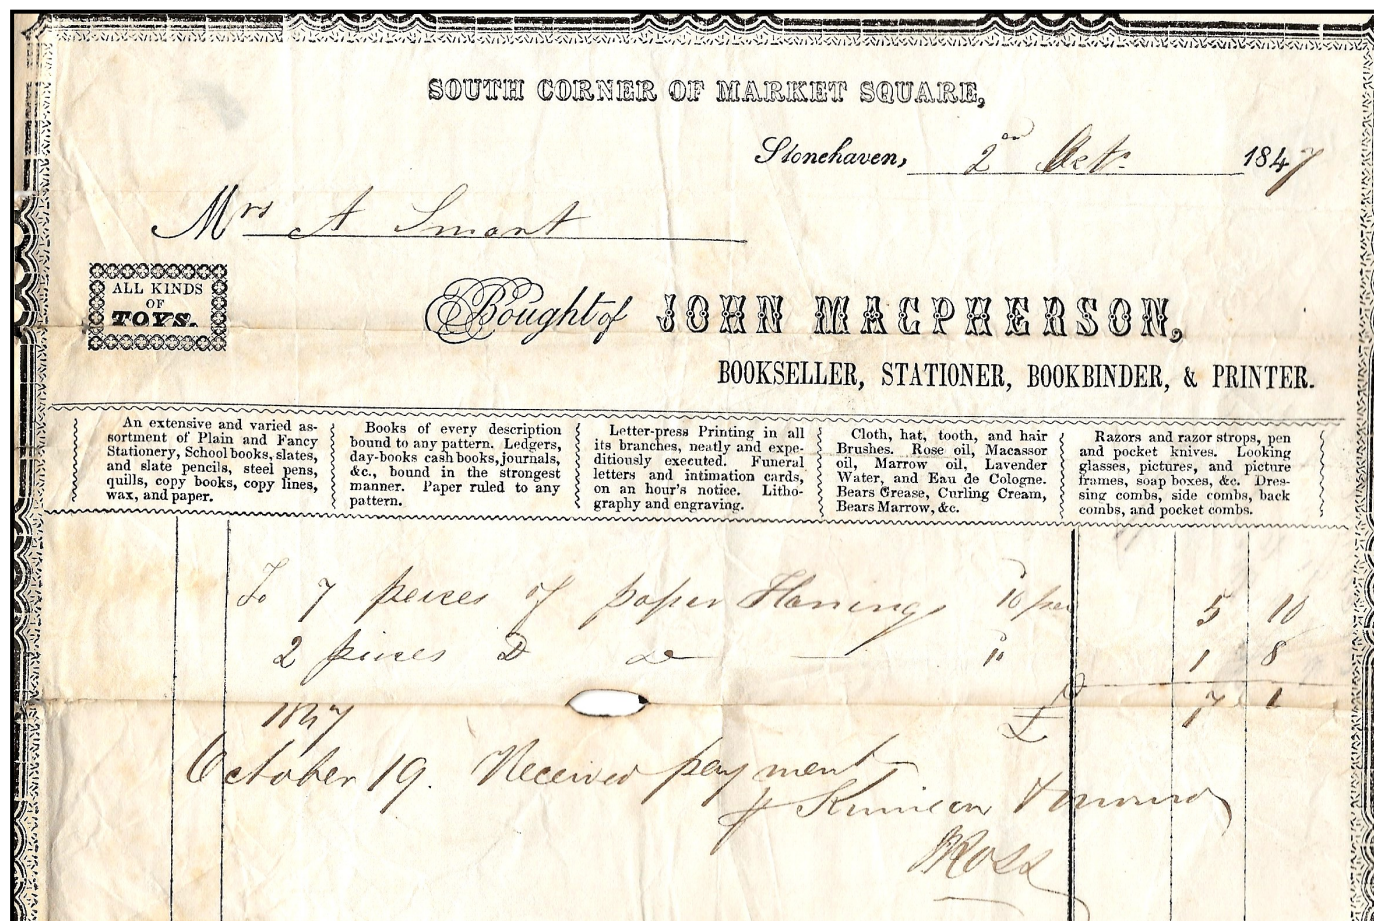 SOUTH CORNER OF MARKET SQUARE,
Stonehaven, 2 Oct. 1847
Mrs A Smart
ALL KINDS
OF
TOYS.
Bought of JOHN MACPHERSON,
BOOKSELLER, STATIONER, BOOKBINDER, & PRINTER.
An extensive and varied as-
sortment of Plain and Fancy
Stationery, School books, slates,
and slate pencils, steel pens,
quills, copy books, copy lines,
wax, and paper.
Books of every description
bound to any pattern. Ledgers,
day-books cash books, journals,
&c., bound in the strongest
manner. Paper ruled to any
pattern.
Letter-press Printing in all
its branches, neatly and expe-
ditiously executed. Funeral
letters and intimation cards,
on an hour's notice. Litho-
graphy and engraving.
Cloth, hat, tooth, and hair
Brushes. Rose oil, Macassor
oil, Marrow oil, Lavender
Water, and Eau de Cologne.
Bears Grease, Curling Cream,
Bears Marrow, &c.
Razors and razor strops, pen
and pocket knives. Looking
glasses, pictures, and picture
frames, soap boxes, &c. Dres-
sing combs, side combs, back
combs, and pocket combs.
To 7 peices of paper Hanings 10 per 5 10
2 pieces Do Do 10 1 8
£ 7 1
1847
October 19. Received payment
Ross